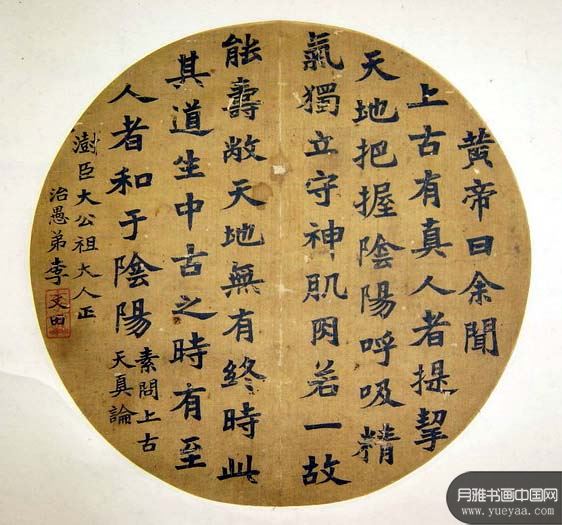 黄帝曰余聞
上古有真人者提挈
天地把握陰陽呼吸精
氣獨立守神肌肉若一故
能壽敝天地無有終時此
其道生中古之時有至
人者和于陰陽
素問上古
天真論
澍臣大公祖大人正
治愚弟李
文田
月雅书画中国网
www.yueyaa.com